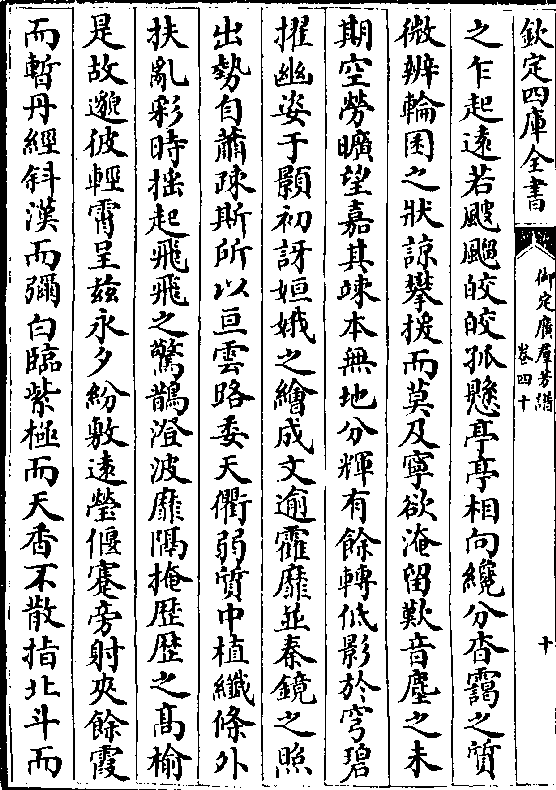 欽定四庫全書
御定廣羣芳譜
卷四十
十
之乍起遠若颼飀皎皎孤懸亭亭相向纔分杳靄之質
微辨輪囷之狀諒攀援而莫及寧欲淹留歎音塵之未
期空勞曠望嘉其竦本無地分輝有餘轉低影於穹碧
擢幽姿于顥初訝姮娥之繪成文逾霍靡並秦鏡之照
出勢自蕭疎斯所以亘雲路委天衢弱質中植纖條外
扶亂彩時搖起飛飛之驚鵲澄波靡隔掩歴歴之高榆
是故邈彼輕霄呈兹永夕紛敷遠瑩偃蹇旁射夾餘霞
而暫丹經斜漢而彌白臨紫極而天香不散指北斗而